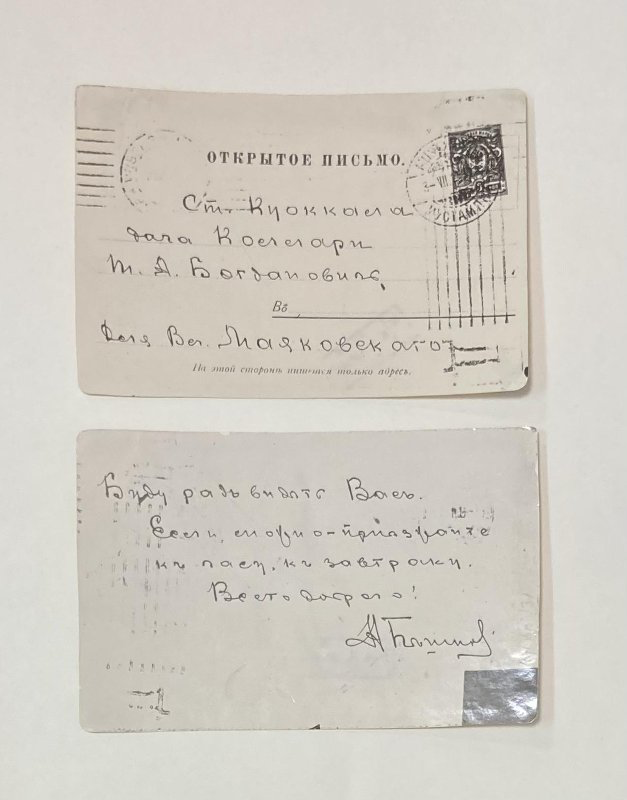 ОТКРЫТОЕ ПИСЬМО.
Ст. Куоккала
дача Коллари
Т. А. Богдановичъ
Въ
Для Вл. Маяковскаго
На этой сторонѣ пишется только адресъ.
Буду радъ видѣть Васъ.
Если можно – пріѣзжайте
къ часу, къ завтраку.
Всего доброго!